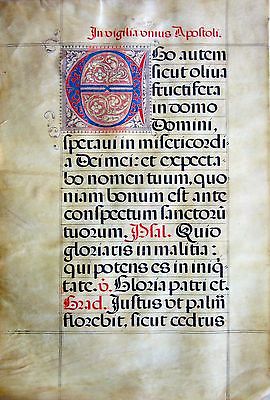 In vigilia vnius Apostoli.
Ego autem
sicut oliua
fructifera
in domo
Domini,
speraui in misericordi
a Dei mei: et expecta
bo nomen tuum, quo
niam bonum est ante
conspectum sanctorū
tuorum. Psal. Quid
gloriaris in malitia:
qui potens es in iniq̄
tate. ℣. Gloria patri et.
Grad. Justus vt palm̄
florebit, sicut cedrus